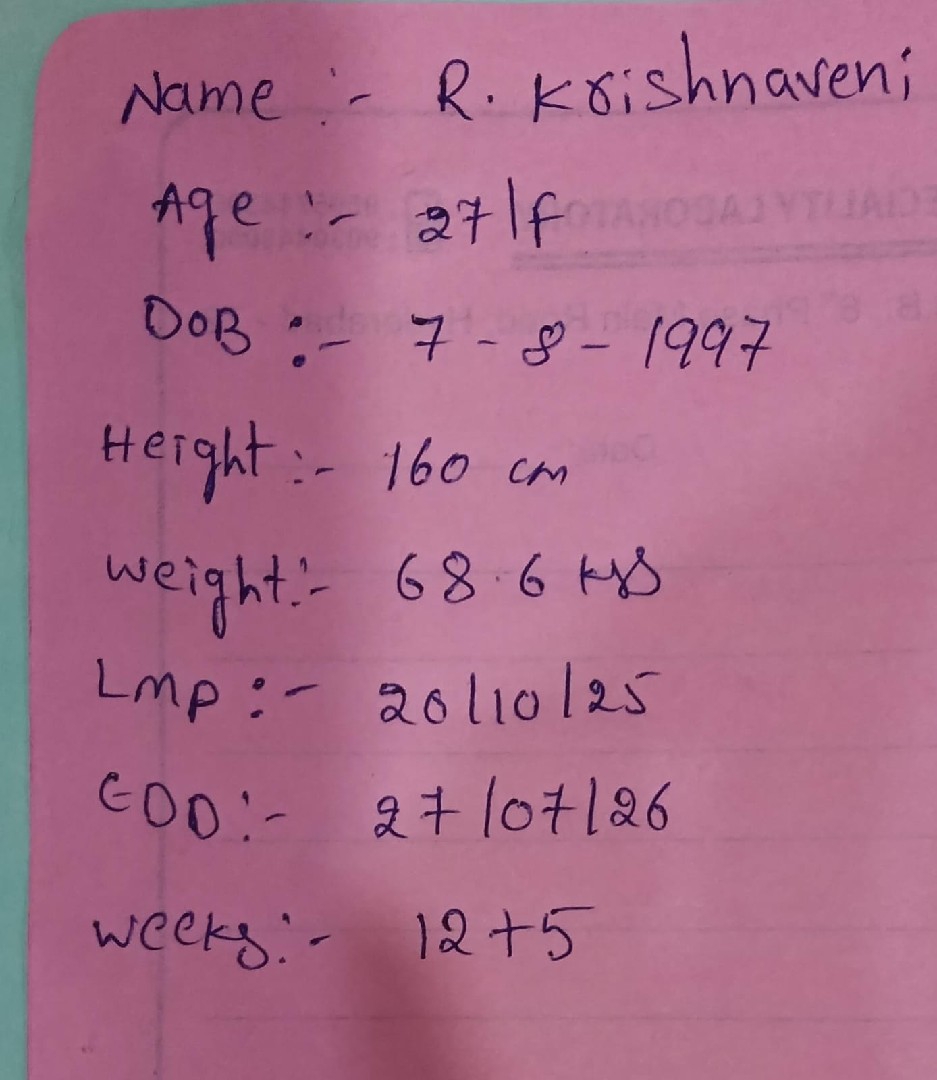 Name :- R. Krishnaveni
Age :- 27/f
DOB :- 7-8-1997
Height :- 160 cm
Weight :- 68.6 kgs
Lmp :- 20/10/25
EDD :- 27/07/26
weeks :- 12+5